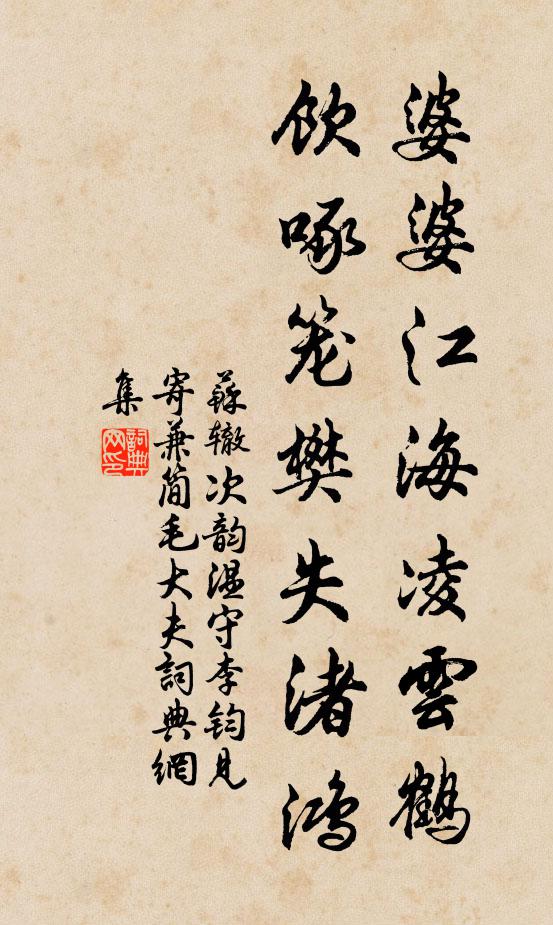 婆婆江海凌雲鶴
飲啄笼樊失渚鴻
蘇辙次韵温守李鈞見
寄兼简毛大夫詞典網
集
詞典
网印